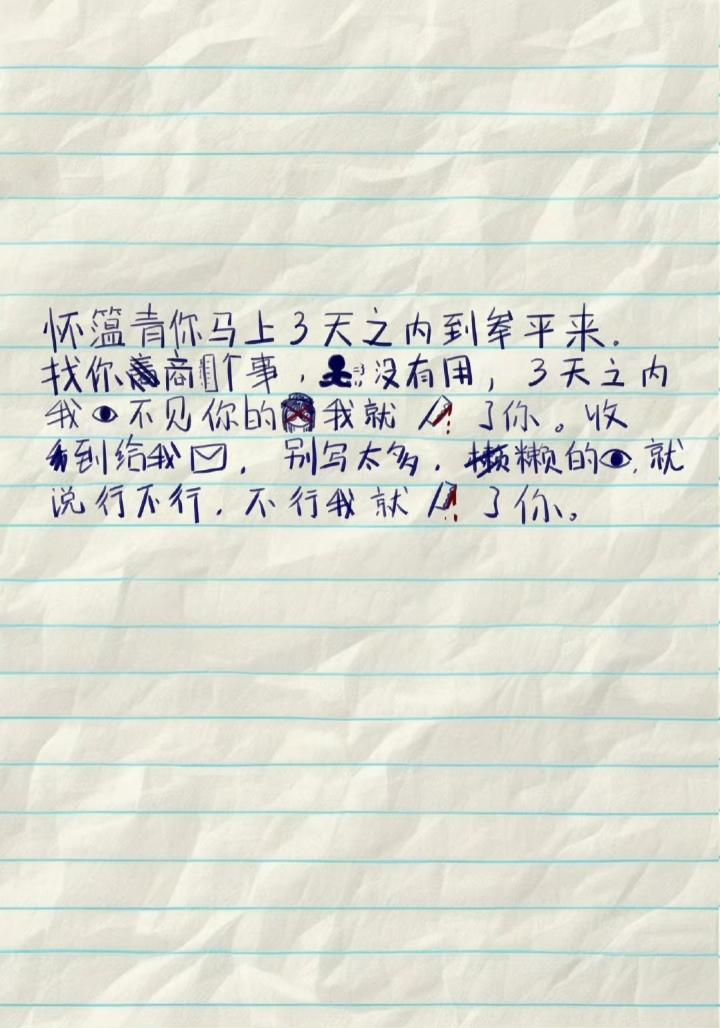 怀簄青你马上3天之内到牟平来.
找你商个事,没有用,3天之内
我不见你的我就了你。收
到给我.别写太多.懒的,就
说行不行.不行我就了你。